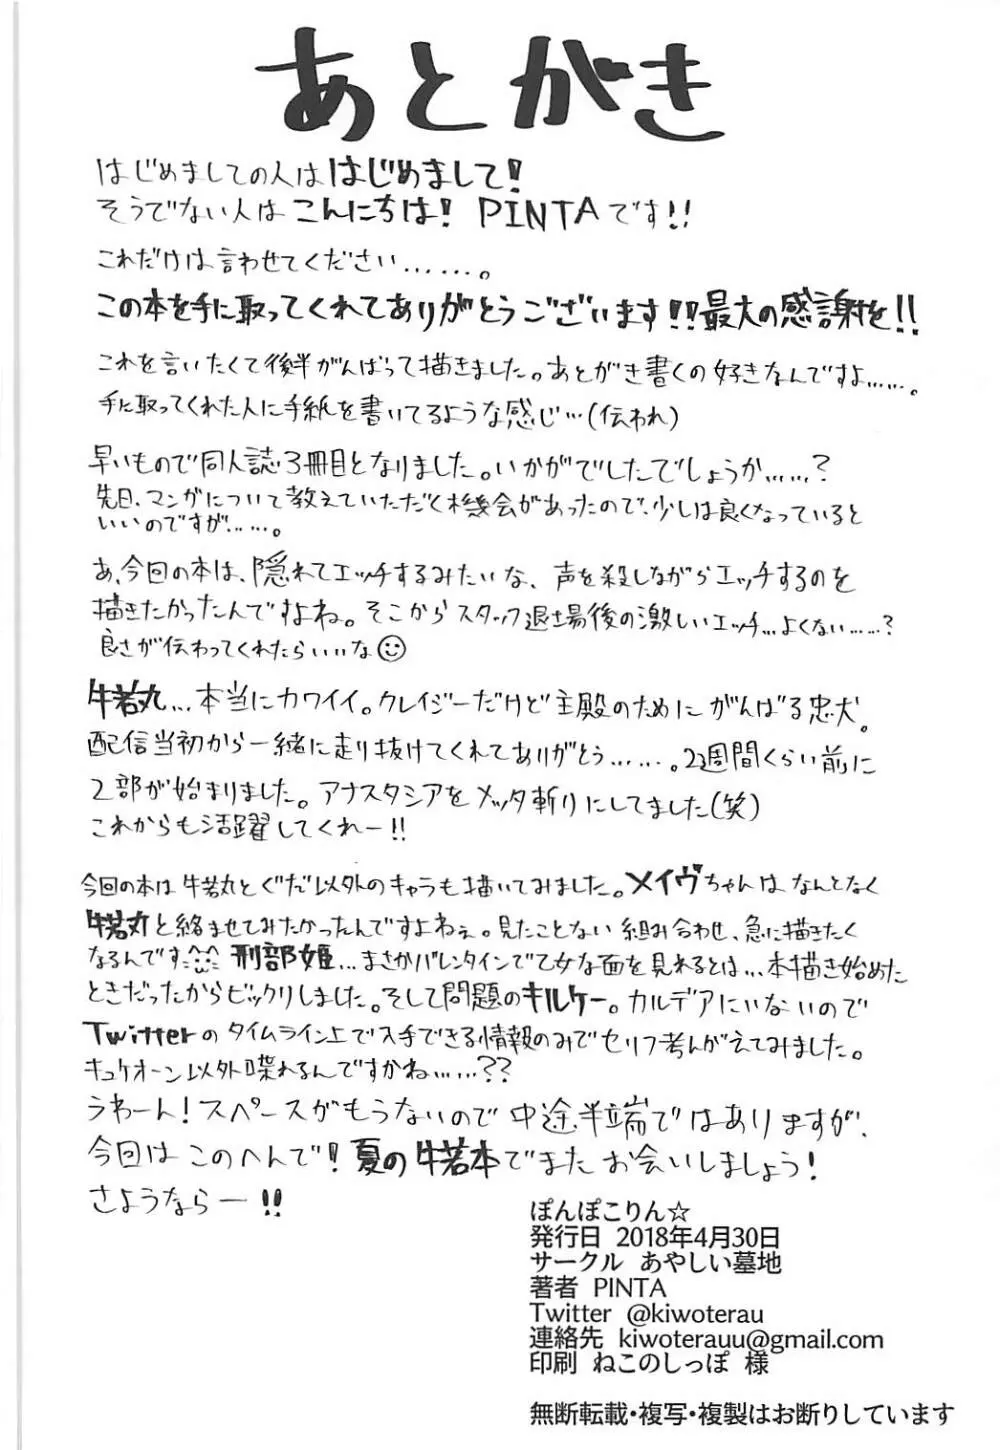 あとがき
はじめましての人ははじめまして!
そうでない人はこんにちは! PINTAです!!
これだけは言わせてください.......。
この本を手に取ってくれてありがとうございます!!最大の感謝を!!
これを言いたくて後半がんばって描きました。あとがき書くの好きなんですよ......。
手に取ってくれた人に手紙を書いてるような感じ...(伝われ)
早いもので同人誌3冊目となりました。いかがでしたでしょうか......?
先日、マンガについて教えていただく機会があったので、少しは良くなっていると
いいのですが......。
あ、今回の本は、隠れてエッチするみたいな、声を殺しながらエッチするのを
描きたかったんですよね。そこからスタッフ退場後の激しいエッチ...よくない......?
良さが伝わってくれたらいいな☺
牛若丸...本当にカワイイ。クレイジーだけど主殿のためにがんばる忠犬。
配信当初から一緒に走り抜けてくれてありがとう......。2週間くらい前に
2部が始まりました。アナスタシアをメッタ斬りにしてました(笑)
これからも活躍してくれー!!
今回の本は牛若丸とぐだ以外のキャラも描いてみました。メイヴちゃんはなんとなく
牛若丸と絡ませてみたかったんですよねぇ。見たことない組み合わせ、急に描きたく
なるんです 刑部姫...まさかバレンタインで乙女な面を見れるとは...本描き始めた
ときだったからビックリしました。そして問題のキルケー。カルデアにいないので
Twitterのタイムライン上で入手できる情報のみでセリフ考んがえてみました。
キュケオーン以外喋れるんですかね......??
うわーん!スペースがもうないので中途半端ではありますが、
今回はこのへんで!夏の牛若本でまたお会いしましょう!
さようならー!!
ぽんぽこりん☆
発行日 2018年4月30日
サークル あやしい墓地
著者 PINTA
Twitter @kiwoterau
連絡先 kiwoterauu@gmail.com
印刷 ねこのしっぽ 様
無断転載・複写・複製はお断りしています